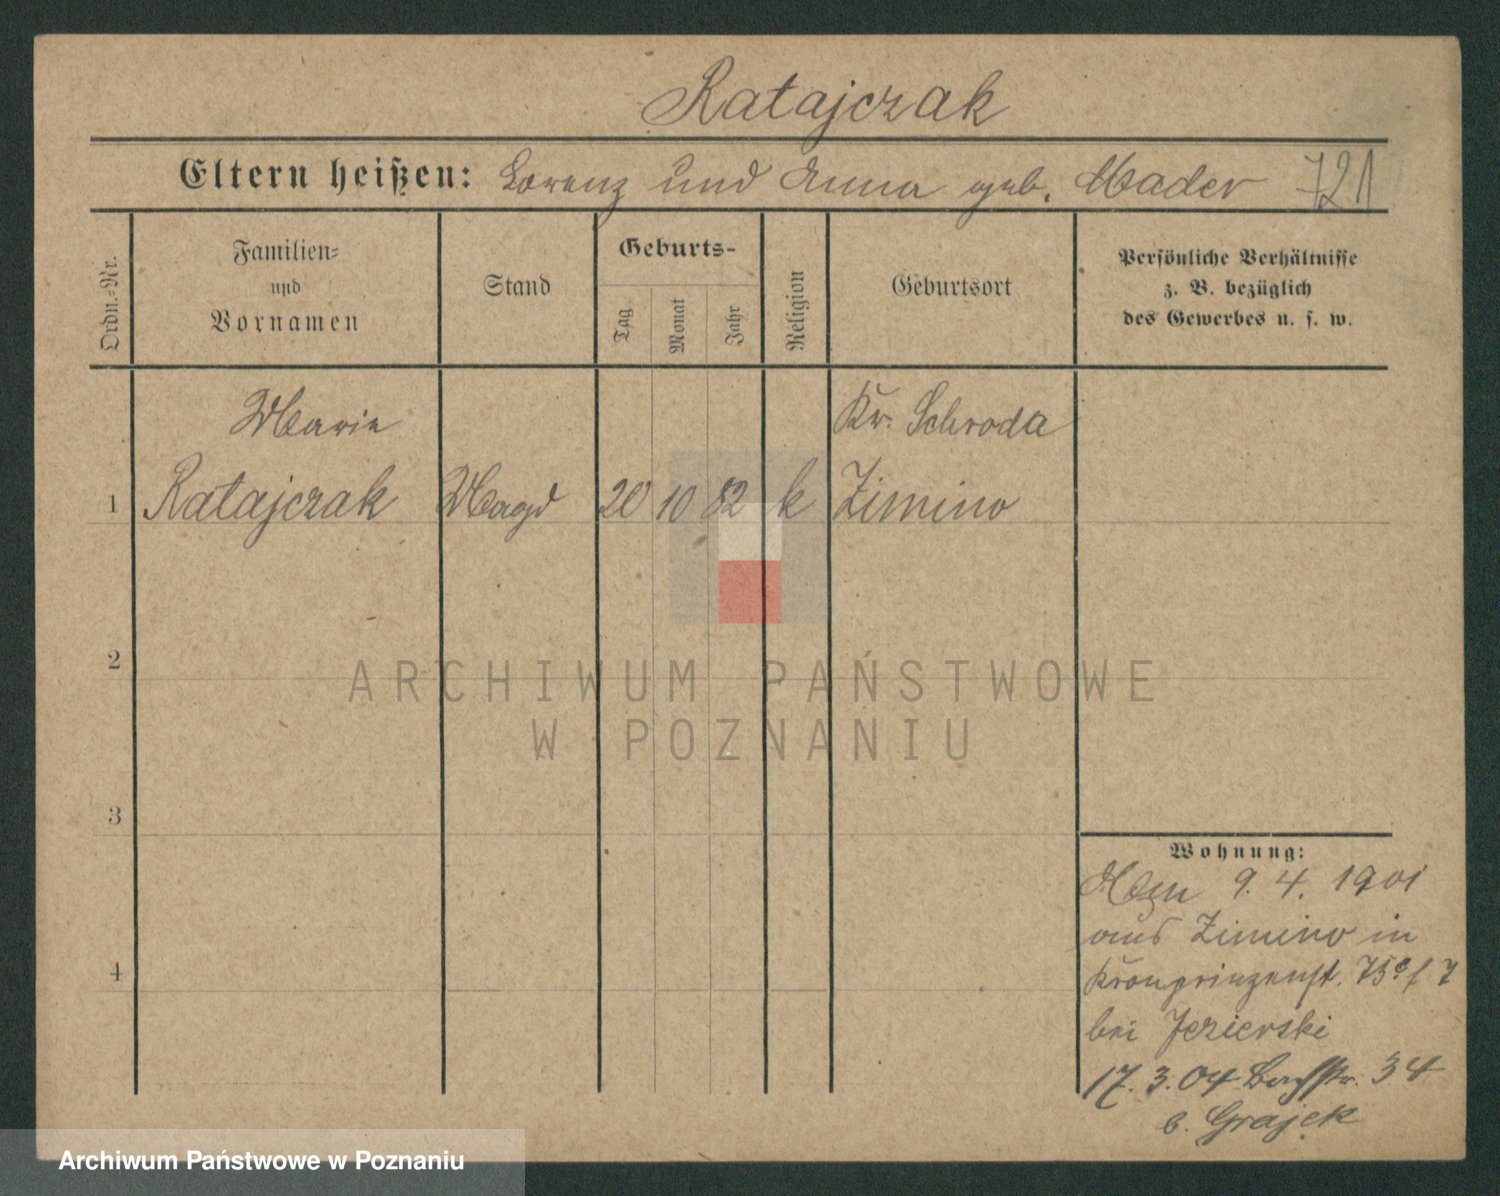 Ratajczak
Eltern heißen: Lorenz und Anna geb. Mader 721
Ordn.-Nr.
Familien-
und
Vornamen
Stand
Geburts-
Tag
Monat
Jahr
Religion
Geburtsort
Persönliche Verhältnisse
z. B. bezüglich
des Gewerbes u. s. w.
Marie Kr. Schroda
1 Ratajczak Magd 20 10 82 k Zimino
2
ARCHIWUM PAŃSTWOWE
W POZNANIU
3
4
Wohnung:
9. 4. 1901
aus Zimino in
Kronprinzenst. 75
bei Jezierski
17. 3. 04 Bachstr. 34
b. Grajek
Archiwum Państwowe w Poznaniu